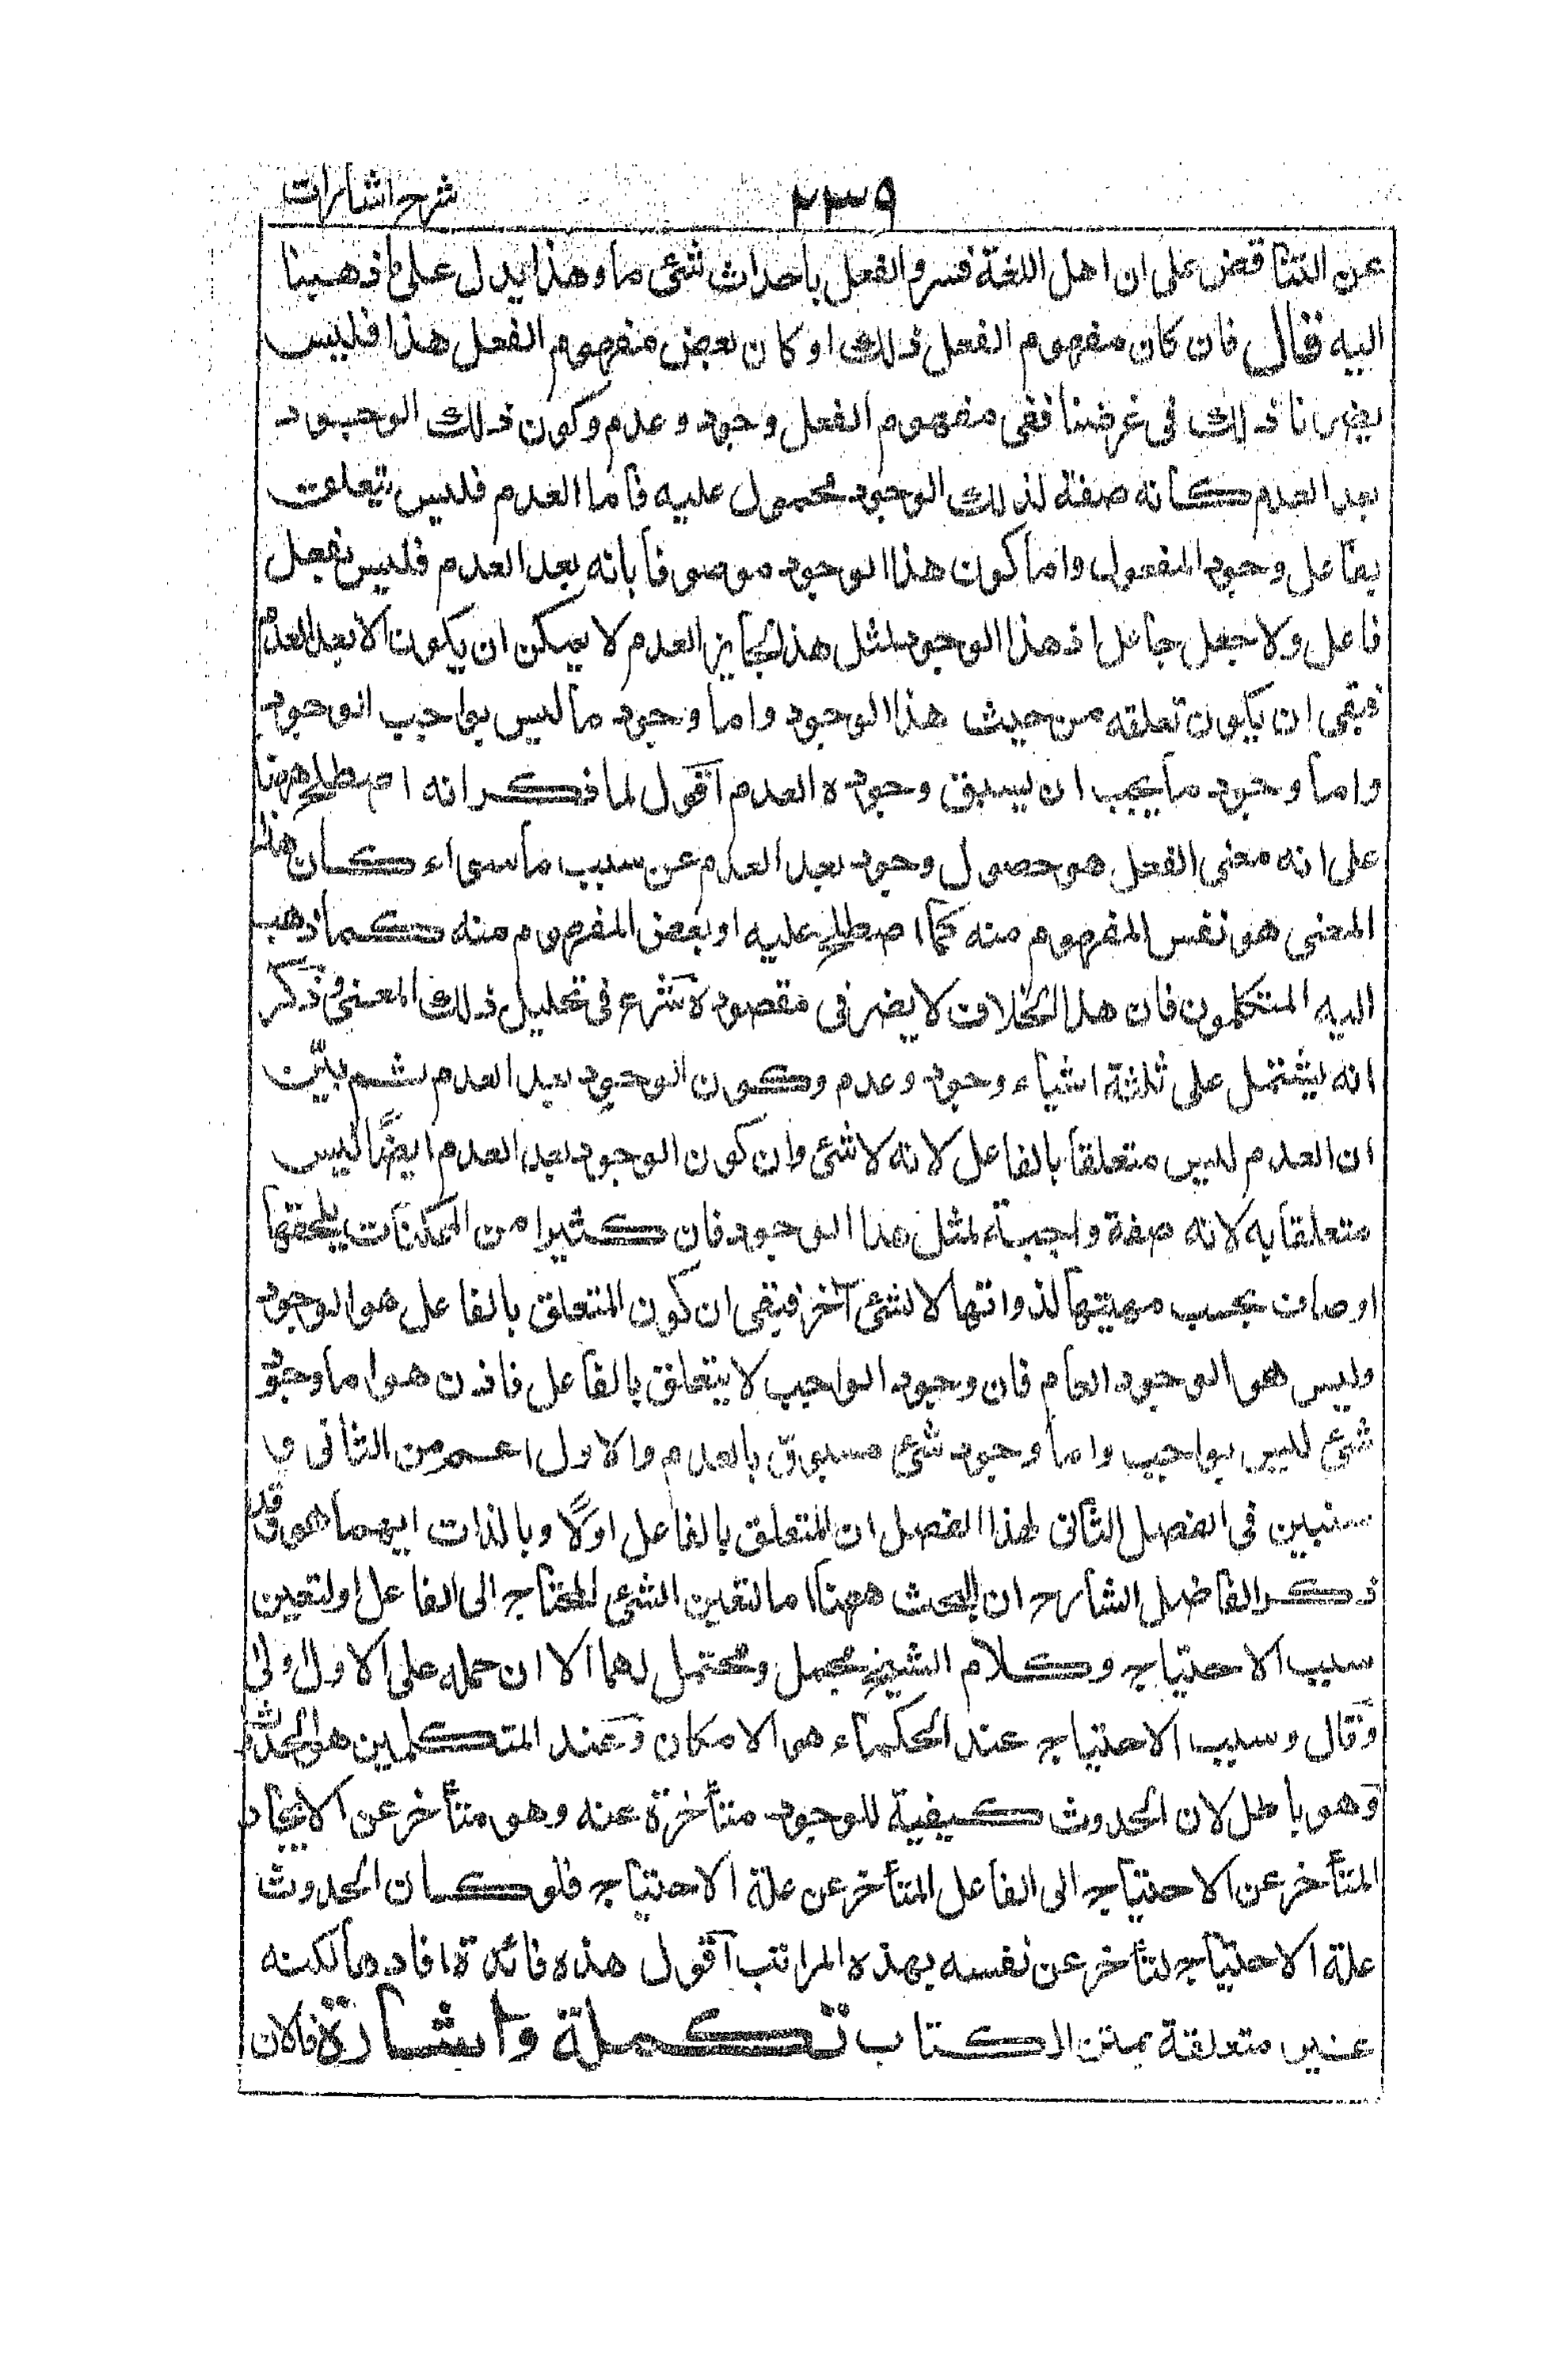 شرح اشارات
٢٣٩
عن التناقض على ان اهل اللغة فسروا الفعل باحداث شئ ما وهذا يدل على ما ذهبنا
اليه قال فان كان مفهوم الفعل ذلك او كان بعض مفهوم الفعل هذا فليس
يضرنا ذلك فى غرضنا ففى مفهوم الفعل وجود وعدم وكون ذلك الوجود
بعد العدم كانه صفة لذلك الوجود محمول عليه فاما العدم فليس يتعلق
بفاعل وجود المفعول واما كون هذا الوجود موصوفا بانه بعد العدم فليس بفعل
فاعل ولا جعل جاعل اذ هذا الوجود لمثل هذا الجايز العدم لا يمكن ان يكون الا بعد العدم
فبقى ان يكون تعلقه من حيث هذا الوجود واما وجود ما ليس بواجب الوجود
واما وجود ما يجب ان يسبق وجوده العدم اقول لما ذكر انه اصطلح ههنا
على انه معنى الفعل هو حصول وجود بعد العدم عن سبب ما سواء كان هذا
المعنى هو نفس المفهوم منه كما اصطلح عليه او بعض المفهوم منه كما ذهب
اليه المتكلمون فان هذا الخلاف لا يضر فى مقصوده شرع فى تحليل ذلك المعنى فذكر
انه يشتمل على ثلثة اشياء وجود وعدم وكون الوجود بعد العدم ثم بيّن
ان العدم ليس متعلقا بالفاعل لانه لا شئ وان كون الوجود بعد العدم ايضًا ليس
متعلقا به لانه صفة واجبة لمثل هذا الوجود فان كثيرا من الممكنات يلحقها
اوصاف بحسب مهيتها لذواتها لا لشئ آخر فبقى ان كون المتعلق بالفاعل هو الوجود
وليس هو الوجود العام فان وجود الواجب لا يتعلق بالفاعل فاذن هو اما وجود
شئ ليس بواجب واما وجود شئ مسبوق بالعدم والاول اعم من الثانى و
سنبين فى الفصل الثانى لهذا الفصل ان المتعلق بالفاعل اولًا وبالذات ايهما هو وقد
ذكر الفاضل الشارح ان البحث ههنا اما لتعين الشئ المحتاج الى الفاعل او لتعين
سبب الاحتياج وكلام الشيخ مجمل ومحتمل لهما الا ان حمله على الاول اولى
وقال وسبب الاحتياج عند الحكماء هو الامكان وعند المتكلمين هو الحدوث
وهو باطل لان الحدوث كيفية للوجود متأخرة عنه وهو متأخر عن الايجاد
المتأخر عن الاحتياج الى الفاعل المتأخر عن علة الاحتياج فلو كان الحدوث
علة الاحتياج لتأخر عن نفسه بهذه المراتب اقول هذه فائدة افادها لكنه
غير متعلقة بمتن الكتاب تكملة واشارة فالان